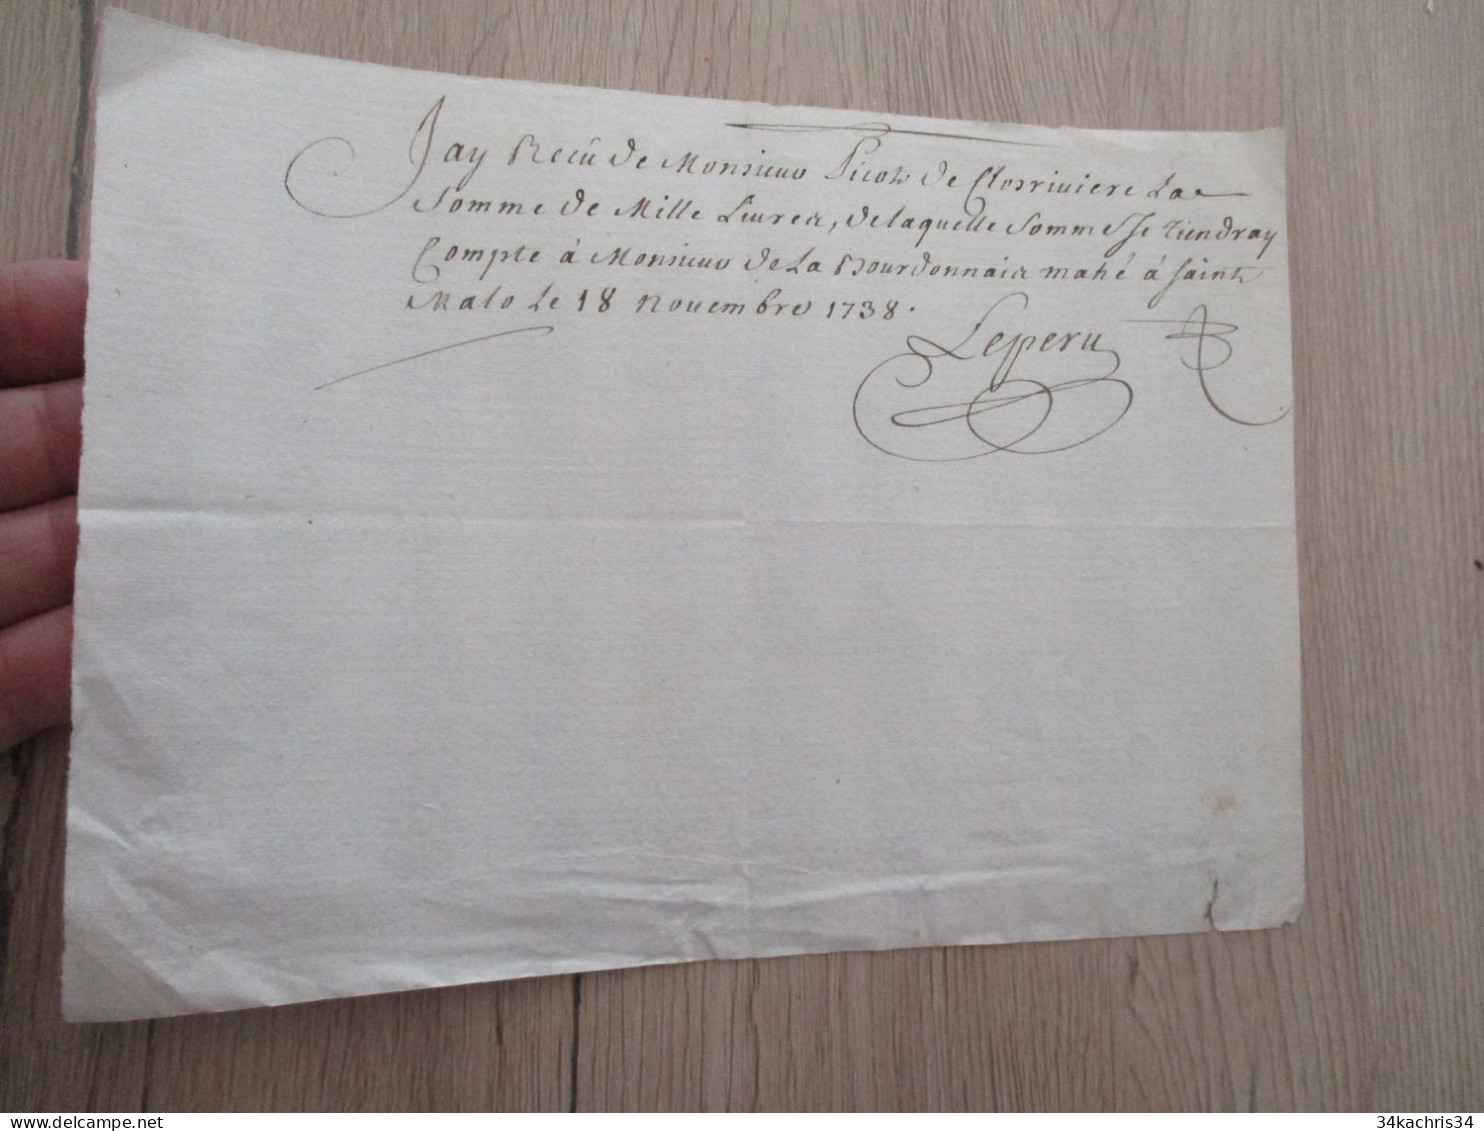 Jay Recû de Monsieur Picot de Closriviere La
Somme de Mille Livres, de laquelle somme Je tiendray
Compte à Monsieur de La Bourdonnais mahé à Saint
Malo Le 18 Novembre 1738.
Leperu
34kachris34
delcampe.net